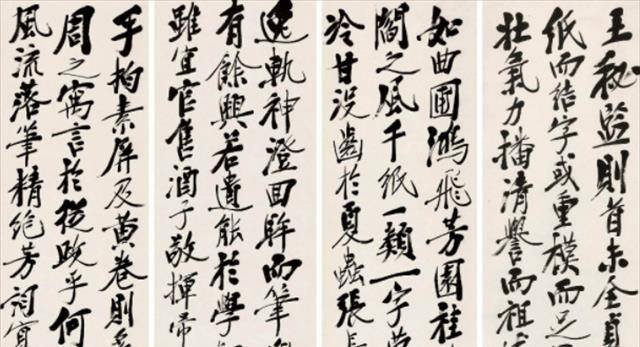 王秘監則首末全貞
紙而結字或重模而足
壯氣力播清譽而祖
如曲圃鴻飛芳園桂
閻之風千紙一類一字
冷甘沒齒於夏蟲張
逸軌神澄回眸而筆
有餘興若遺能於學
雖宜官售酒子敬揮帚
手拘素屏及黃卷則
周之寓言於從政乎何
風流落筆精絕芳詞寡